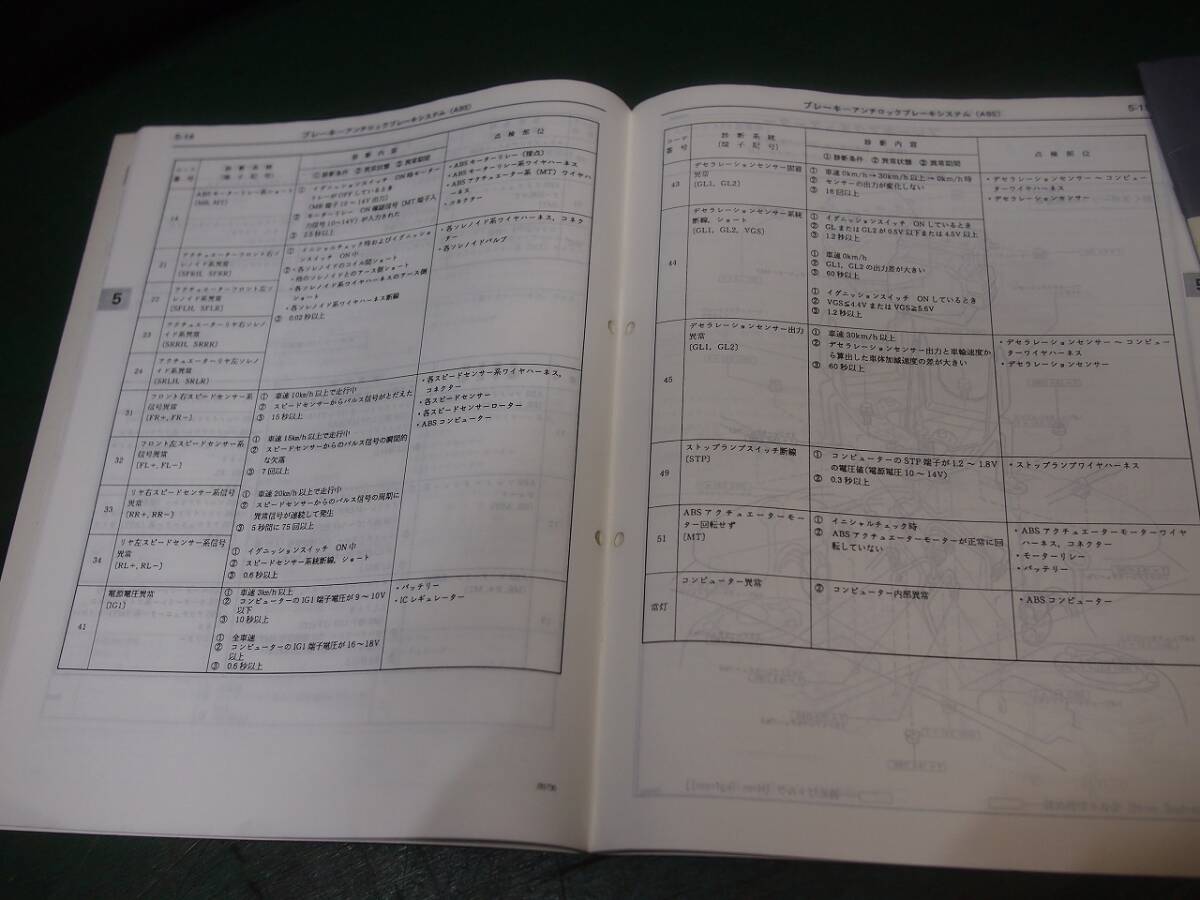 5-14
ブレーキーアンチロックブレーキシステム (ABS)
コード
番号
診断系統
(端子記号)
診断内容
①診断条件 ②異常状態 ③異常期間
点検部位
14
ABSモーターリレー系ショート
(MR, MT)
① イグニッションスイッチ ON時モーター
リレーがOFFしているとき
(MR端子10〜14V出力)
② モーターリレー ON確認信号 (MT端子入
力信号10〜14V) が入力された
・ABSモーターリレー (接点)
・ABSモーターリレー系ワイヤハーネス
・ABSアクチュエーター系 (MT) ワイヤハ
ーネス
・コネクター
21
アクチュエーターフロント右ソ
レノイド系異常
(SFRH, SFRR)
① イニシャルチェック時およびイグニッショ
ンスイッチ ON中
②・各ソレノイドのコイル間ショート
・他のソレノイドとのアース側ショート
・各ソレノイド系ワイヤハーネスのアース側
ショート
・各ソレノイド系ワイヤハーネス断線
③ 0.02秒以上
・各ソレノイド系ワイヤハーネス, コネク
ター
・各ソレノイドバルブ
22
アクチュエーターフロント左ソ
レノイド系異常
(SFLH, SFLR)
23
アクチュエーターリヤ右ソレノ
イド系異常
(SRRH, SRRR)
24
アクチュエーターリヤ左ソレノ
イド系異常
(SRLH, SRLR)
31
フロント右スピードセンサー系
信号異常
(FR+, FR−)
① 車速10km/h以上で走行中
② スピードセンサーからパルス信号がとだえた
③ 15秒以上
・各スピードセンサー系ワイヤハーネス,
コネクター
・各スピードセンサー
・各スピードセンサーローター
・ABSコンピューター
32
フロント左スピードセンサー系
信号異常
(FL+, FL−)
① 車速15km/h以上で走行中
② スピードセンサーからのパルス信号の瞬間的
な欠落
③ 7回以上
33
リヤ右スピードセンサー系信号
異常
(RR+, RR−)
① 車速20km/h以上で走行中
② スピードセンサーからのパルス信号の周期に
異常信号が連続して発生
③ 5秒間に75回以上
34
リヤ左スピードセンサー系信号
異常
(RL+, RL−)
① イグニッションスイッチ ON中
② スピードセンサー系統断線, ショート
③ 0.6秒以上
41
電源電圧異常
(IG1)
① 車速3km/h以上
② コンピューターのIG1端子電圧が9〜10V
以下
③ 10秒以上
① 全車速
② コンピューターのIG1端子電圧が16〜18V
以上
③ 0.6秒以上
・バッテリー
・ICレギュレーター
5
ブレーキーアンチロックブレーキシステム (ABS)
コード
番号
診断系統
(端子記号)
診断内容
①診断条件 ②異常状態 ③異常期間
点検部位
43
デセラレーションセンサー固着
異常
(GL1, GL2)
① 車速0km/h→30km/h以上→0km/h時
② センサーの出力が変化しない
③ 16回以上
・デセラレーションセンサー〜コンピュー
ターワイヤハーネス
・デセラレーションセンサー
44
デセラレーションセンサー系統
断線, ショート
(GL1, GL2, VGS)
① イグニッションスイッチ ONしているとき
② GLまたはGL2が0.5V以下または4.5V以上
③ 1.2秒以上
① 車速0km/h
② GL1, GL2の出力差が大きい
③ 60秒以上
① イグニッションスイッチ ONしているとき
② VGS≦4.4VまたはVGS≧5.6V
③ 1.2秒以上
45
デセラレーションセンサー出力
異常
(GL1, GL2)
① 車速30km/h以上
② デセラレーションセンサー出力と車輪速度か
ら算出した車体加減速度の差が大きい
③ 60秒以上
・デセラレーションセンサー〜コンピュー
ターワイヤハーネス
・デセラレーションセンサー
49
ストップランプスイッチ断線
(STP)
① コンピューターのSTP端子が1.2〜1.8V
の電圧値(電源電圧10〜14V)
② 0.3秒以上
・ストップランプワイヤハーネス
51
ABSアクチュエーターモー
ター回転せず
(MT)
① イニシャルチェック時
② ABSアクチュエーターモーターが正常に回
転していない
・ABSアクチュエーターモーターワイヤ
ハーネス, コネクター
・モーターリレー
・バッテリー
常灯
コンピューター異常
② コンピューター内部異常
・ABSコンピューター